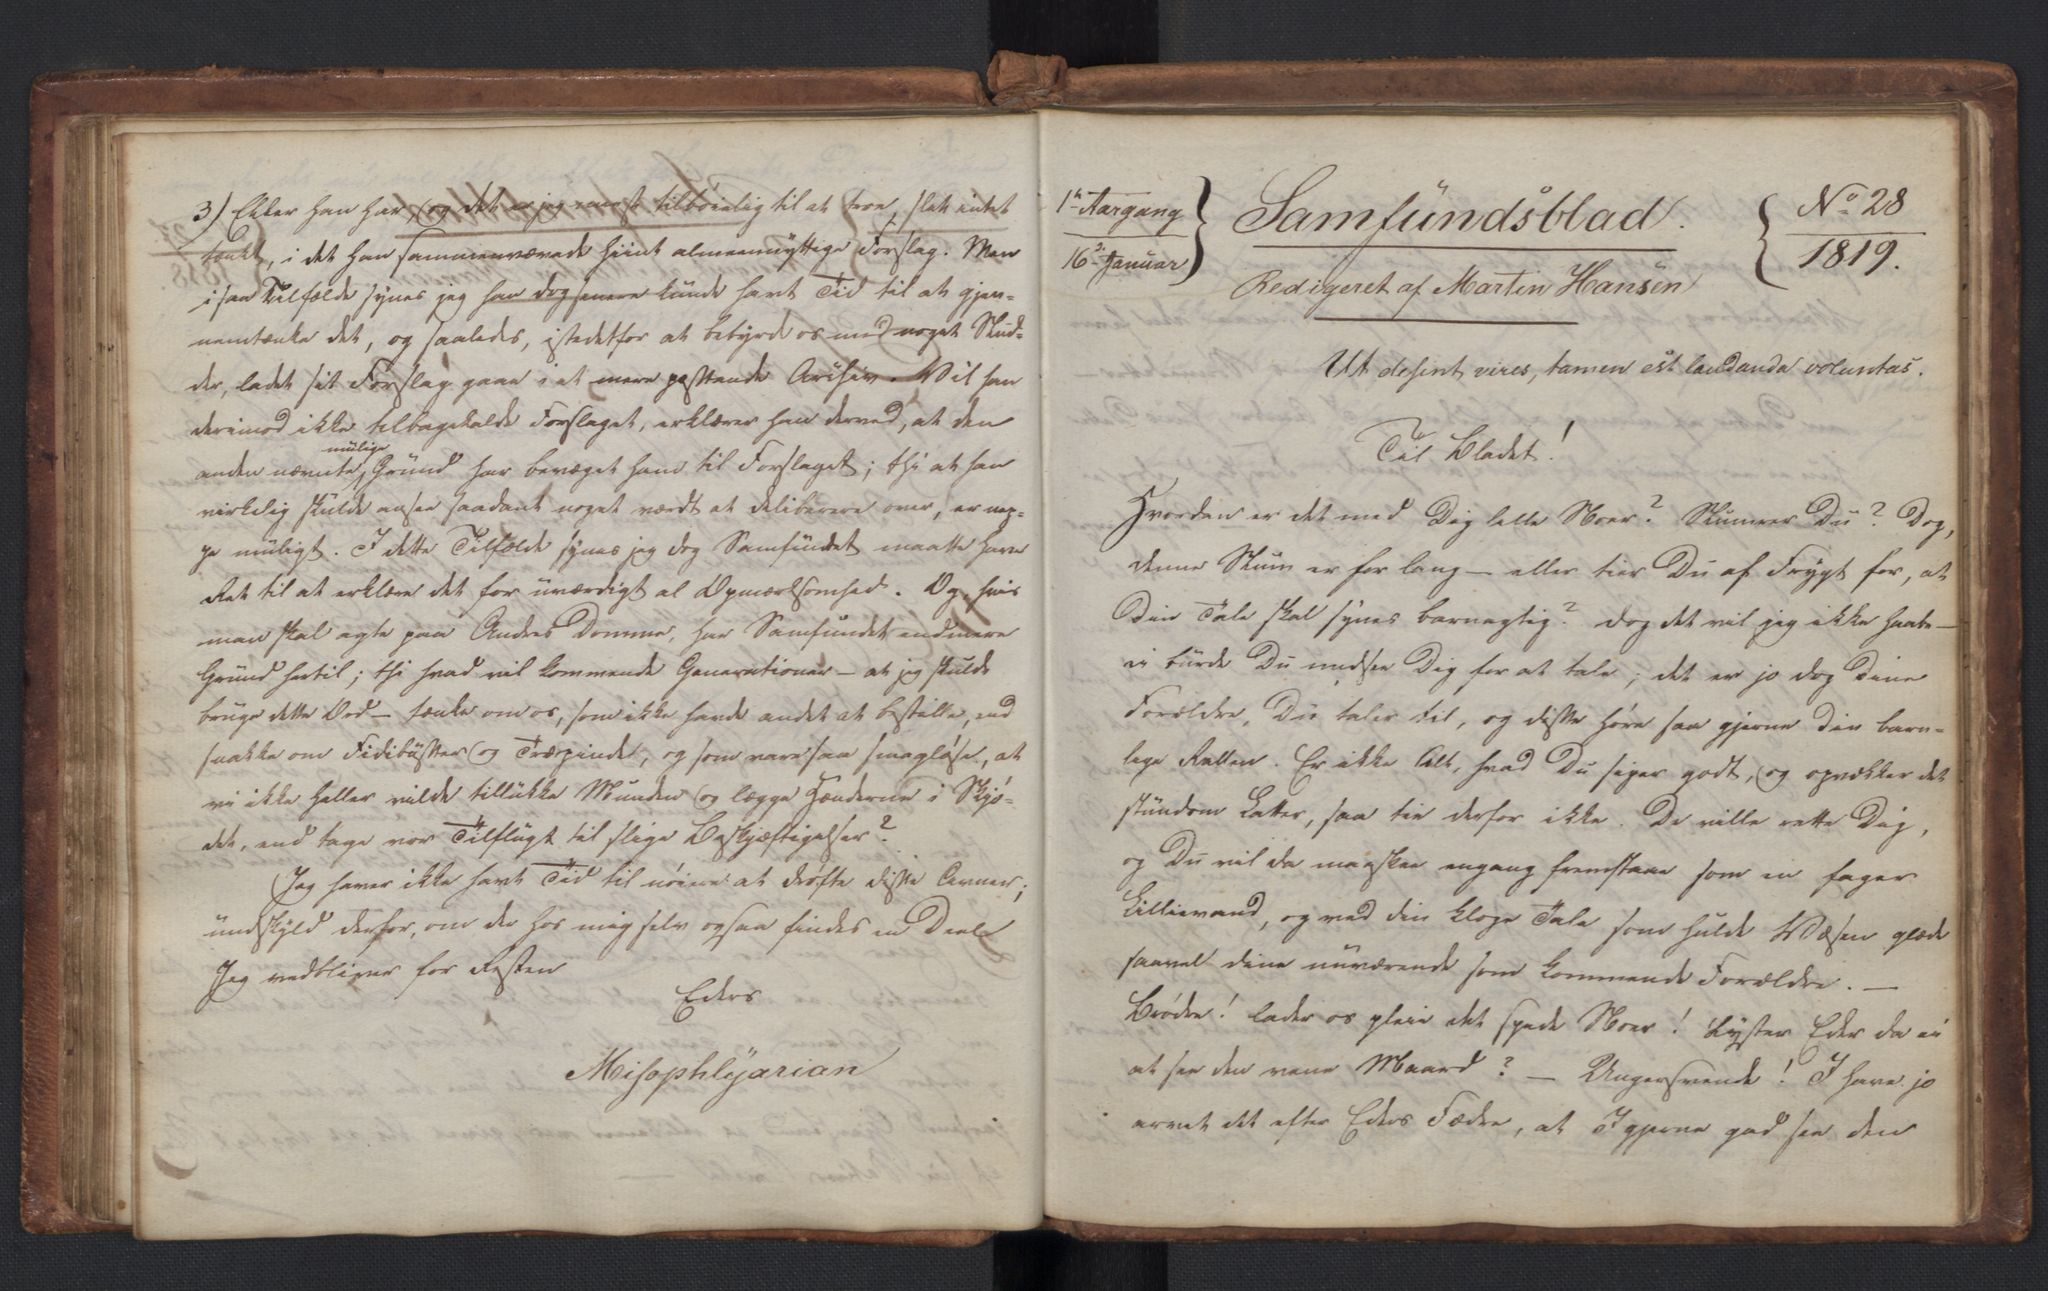 3) Eller han har, (og det er jeg meest tilbøielig til at troe, slet intet
tænkt, i det han sammenvævede hiint almeennyttige Forslag. Men
i saa Tilfælde synes jeg han dog senere kunde havt Tid til at gjen-
nemtænke det, og saaledes, istedetfor at bebyrde os med noget Slud-
der, ladet sit Forslag gaae i et mere passende Archiv. Vil han
derimod ikke tilbagekalde Forslaget, erklærer han derved, at den
mulige
anden nævnte Grund har bevæget ham til Forslaget; thi at han
virkelig skulde ansee saadant noget værdt at deliberere over, er nep-
pe muligt. I dette Tilfælde synes jeg dog Samfundet maatte have
Ret til at erklære det for uværdigt al Opmærksomhed. Og, hvis
man skal agte paa Andres Domme, har Samfundet endmere
Grund hertil; thi hvad vil kommende Generationer – at jeg skulde
bruge dette Ord – tænke om os, som ikke havde andet at bestille, end
snakke om Fidibusser og Træpinde, og som vare saa smagløse, at
vi ikke heller vilde tillukke Munden og lægge Hænderne i Skjø-
det, end tage vor Tilflugt til slige Beskjæftigelser?
Jeg haver ikke havt Tid til nøiere at drøfte disse Ævner;
undskyld derfor, om der hos mig selv ogsaa findes en Deel
Jeg vedbliver for Resten
Eders
Misophlyarian
1ste Aargang
16de Januar
Samfundsblad.
No 28
1819.
Redigeret af Martin Hansen
Ut desint vires, tamen est laudanda voluntas.
Til Bladet!
Hvordan er det med Dig lille Noer? Slumrer Du? Dog,
denne Slum er for lang – eller tier Du af Frygt for, at
Din Tale skal synes barnagtig? Dog det vil jeg ikke haabe –
ei burde Du undsee Dig for at tale; det er jo dog Dine
Forældre, Du taler til, og disse høre saa gjerne din barn-
lige Rallen. Er ikke Alt, hvad Du siger godt, (og opvækker det
stundom Latter, saa tie derfor ikke. De ville rette Dig,
og Du vil da maaskee engang fremstaae som en fager
Lillievand, og ved din kloge Tale som hulde Væsen glæde
saavel dine nuværende som kommende Forældre. –
Brødre! lader os pleie det spæde Noer! Lyster Eder da ei
at see den væne Maard? – Ungersvende! I have jo
arvet det efter Eders Fædre, at I gjerne gad see den